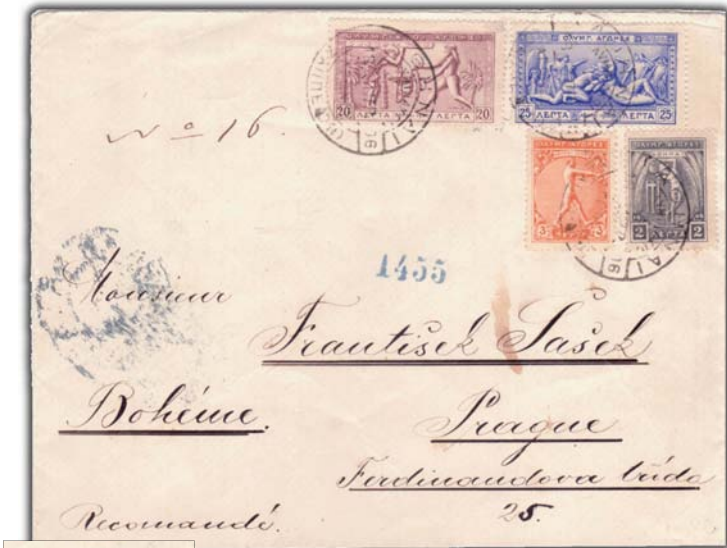 20 ΛΕΠΤΑ ΛΕΠΤΑ 20
ΟΛΥΜΠ. ΑΓΩΝΕΣ
25 ΛΕΠΤΑ ΛΕΠΤΑ 25
ΟΛΥΜΠ. ΑΓΩΝΕΣ
3 3
2 ΛΕΠΤΑ 2
No 16.
1455
Monsieur
František Sašek
Bohéme.
Prague
Ferdinandova třída
25.
Recomandé.